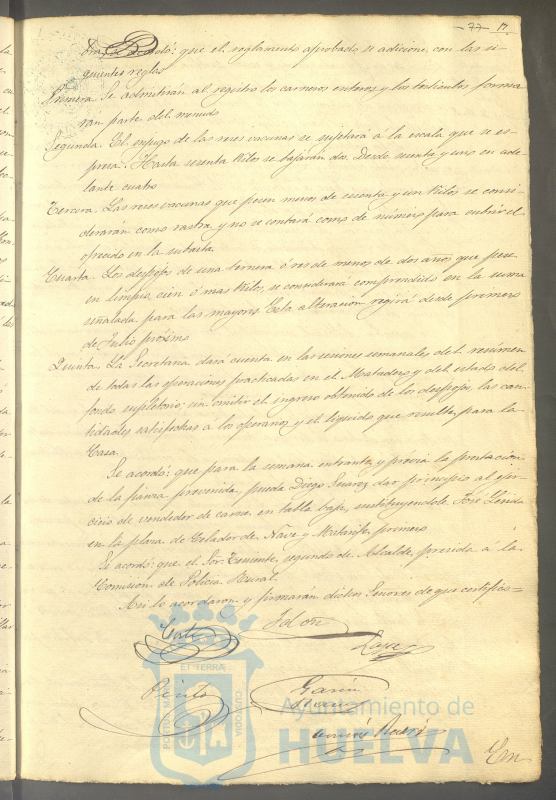 77 17
acordó: que el reglamento aprobado se adicione con las si-
guientes reglas
Primera. Se admitirán al registro los carneros enteros y los testículos forma-
rán parte del menudo
Segunda. El enjugo de las reses vacunas se sujetará á la escala que se es-
presa. Hasta sesenta kilos se bajarán dos. Desde sesenta y uno en ade-
lante cuatro
Tercera. Las reses vacunas que pesen menos de cuenta y un kilos se consi-
derarán como rastra y no se contará como de número para cubrir el
ofrecido en la subasta
Cuarta. Los despojos de una ternera ó res de menos de dos años que pese
en limpio, cien ó mas kilos, se considerará comprendido en la suma
señalada para las mayores Esta alteración regirá desde primero
de Julio próximo
Quinta. La Secretaria dará cuenta en las sesiones semanales del resúmen
de todas las operaciones practicadas en el Matadero y del estado del
fondo supletorio; sin omitir el ingreso obtenido de los despojos, las can-
tidades satisfechas a los operarios y el líquido que resulte para la
Casa.
Se acordó: que para la semana entrante y prévia la prestación
de la fianza prevenida, pueda Diego Suarez dar principio al ejer-
cicio de vendedor de carne en tabla baja, sustituyendole José
en la plaza de Celador de Nave y Matarife primero
Se acordó: que el Sor. Teniente segundo de Alcalde, presida á la
Comision de Policia Rural.
Asi lo acordaron y firmarán dichos Señores de que certifico=
Garcia
PORTUS MARIS ET TERRÆ CUSTODIA
Ayuntamiento de
HUELVA
En